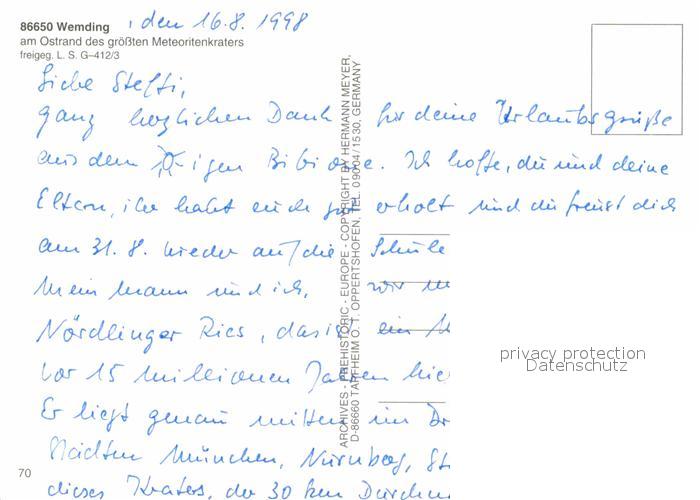 86650 Wemding , den 16.8.1998
am Ostrand des größten Meteoritenkraters
freigeg. L. S. G–412/3
Liebe Steffi,
ganz herzlichen Dank für deine Urlaubsgrüße
aus dem igen Bibione. Ich hoffe, du und deine
Eltern, ihr habt euch gut erholt und du freust dich
am 31. 8. wieder auf die Schule
Mein Mann und ich, wir
Nördlinger Ries, das ist ein
vor 15 Millionen Jahren hie
Er liegt genau mitten im Dr
Städten München, Nürnberg, St
dieses Kraters, der 30 km Durchm
ARCHIVES - PREHISTORIC - EUROPE - COPYRIGHT BY HERMANN MEYER,
D-86660 TAPFHEIM O. T. OPPERTSHOFEN, TEL. 09004/1530, GERMANY
privacy protection
Datenschutz
70